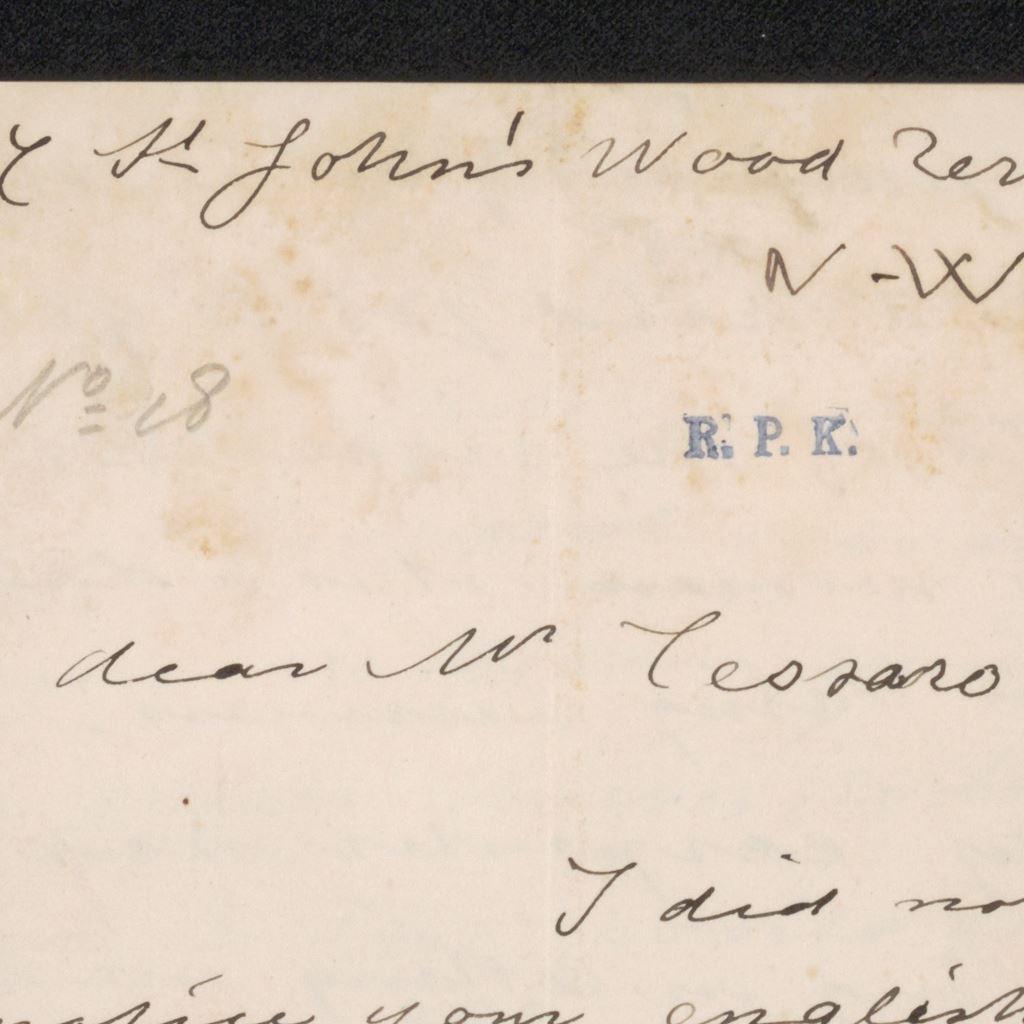 St John's Wood Ter
N-W
No 18
R. P. K.
dear Mr Tessaro
I did no
notice your english